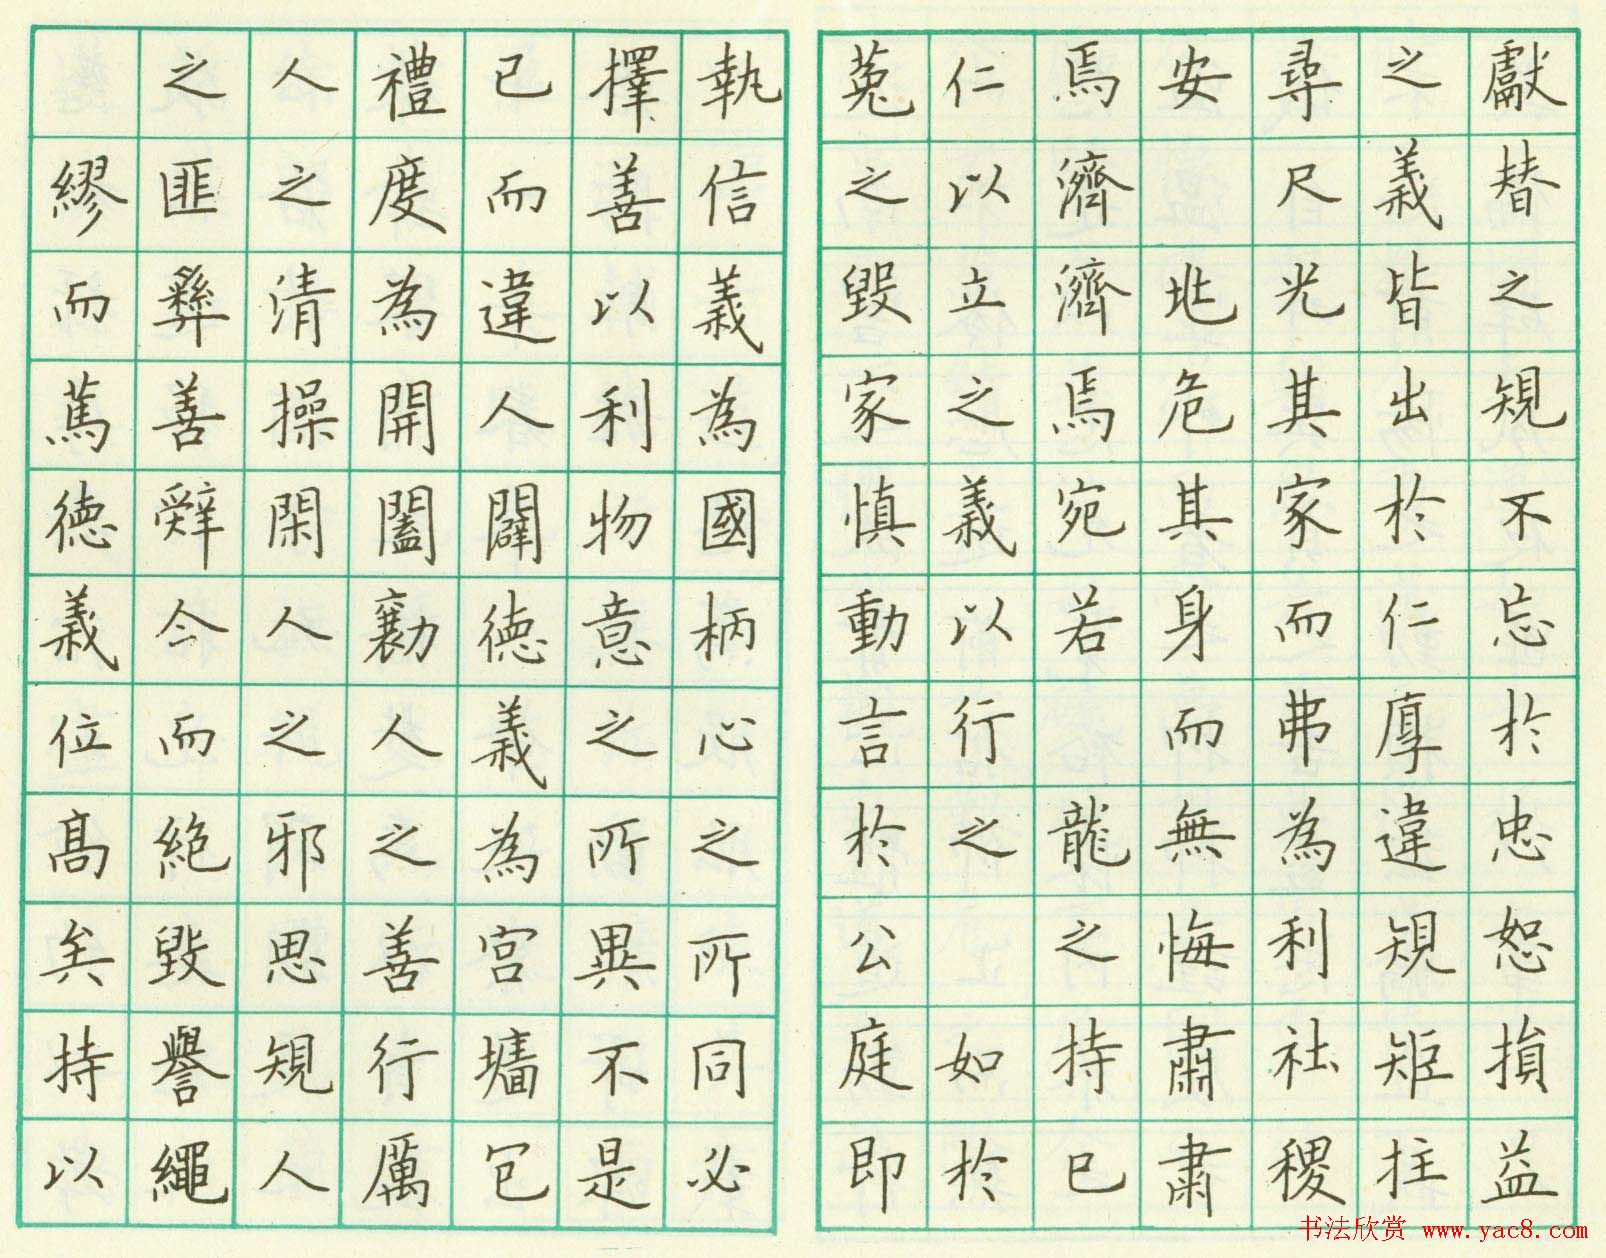 獻替之規不忘於忠恕損益
之義皆出於仁厚違規矩拄
尋尺光其家而弗為利社稷
安危其身而無悔肅肅
焉濟濟焉宛若龍之持已
仁以立之義以行之如於
蒐之毀家慎動言於公庭即
執信義為國柄心之所同必
擇善以利物意之所異不是
已而違人闢德義為宮墻包
禮度為開闔勷人之善行厲
人之清操閑人之邪思規人
之匪彝善辤今而絕毀譽繩
繆而篤德義位高矣持以
书法欣赏 www.yac8.com